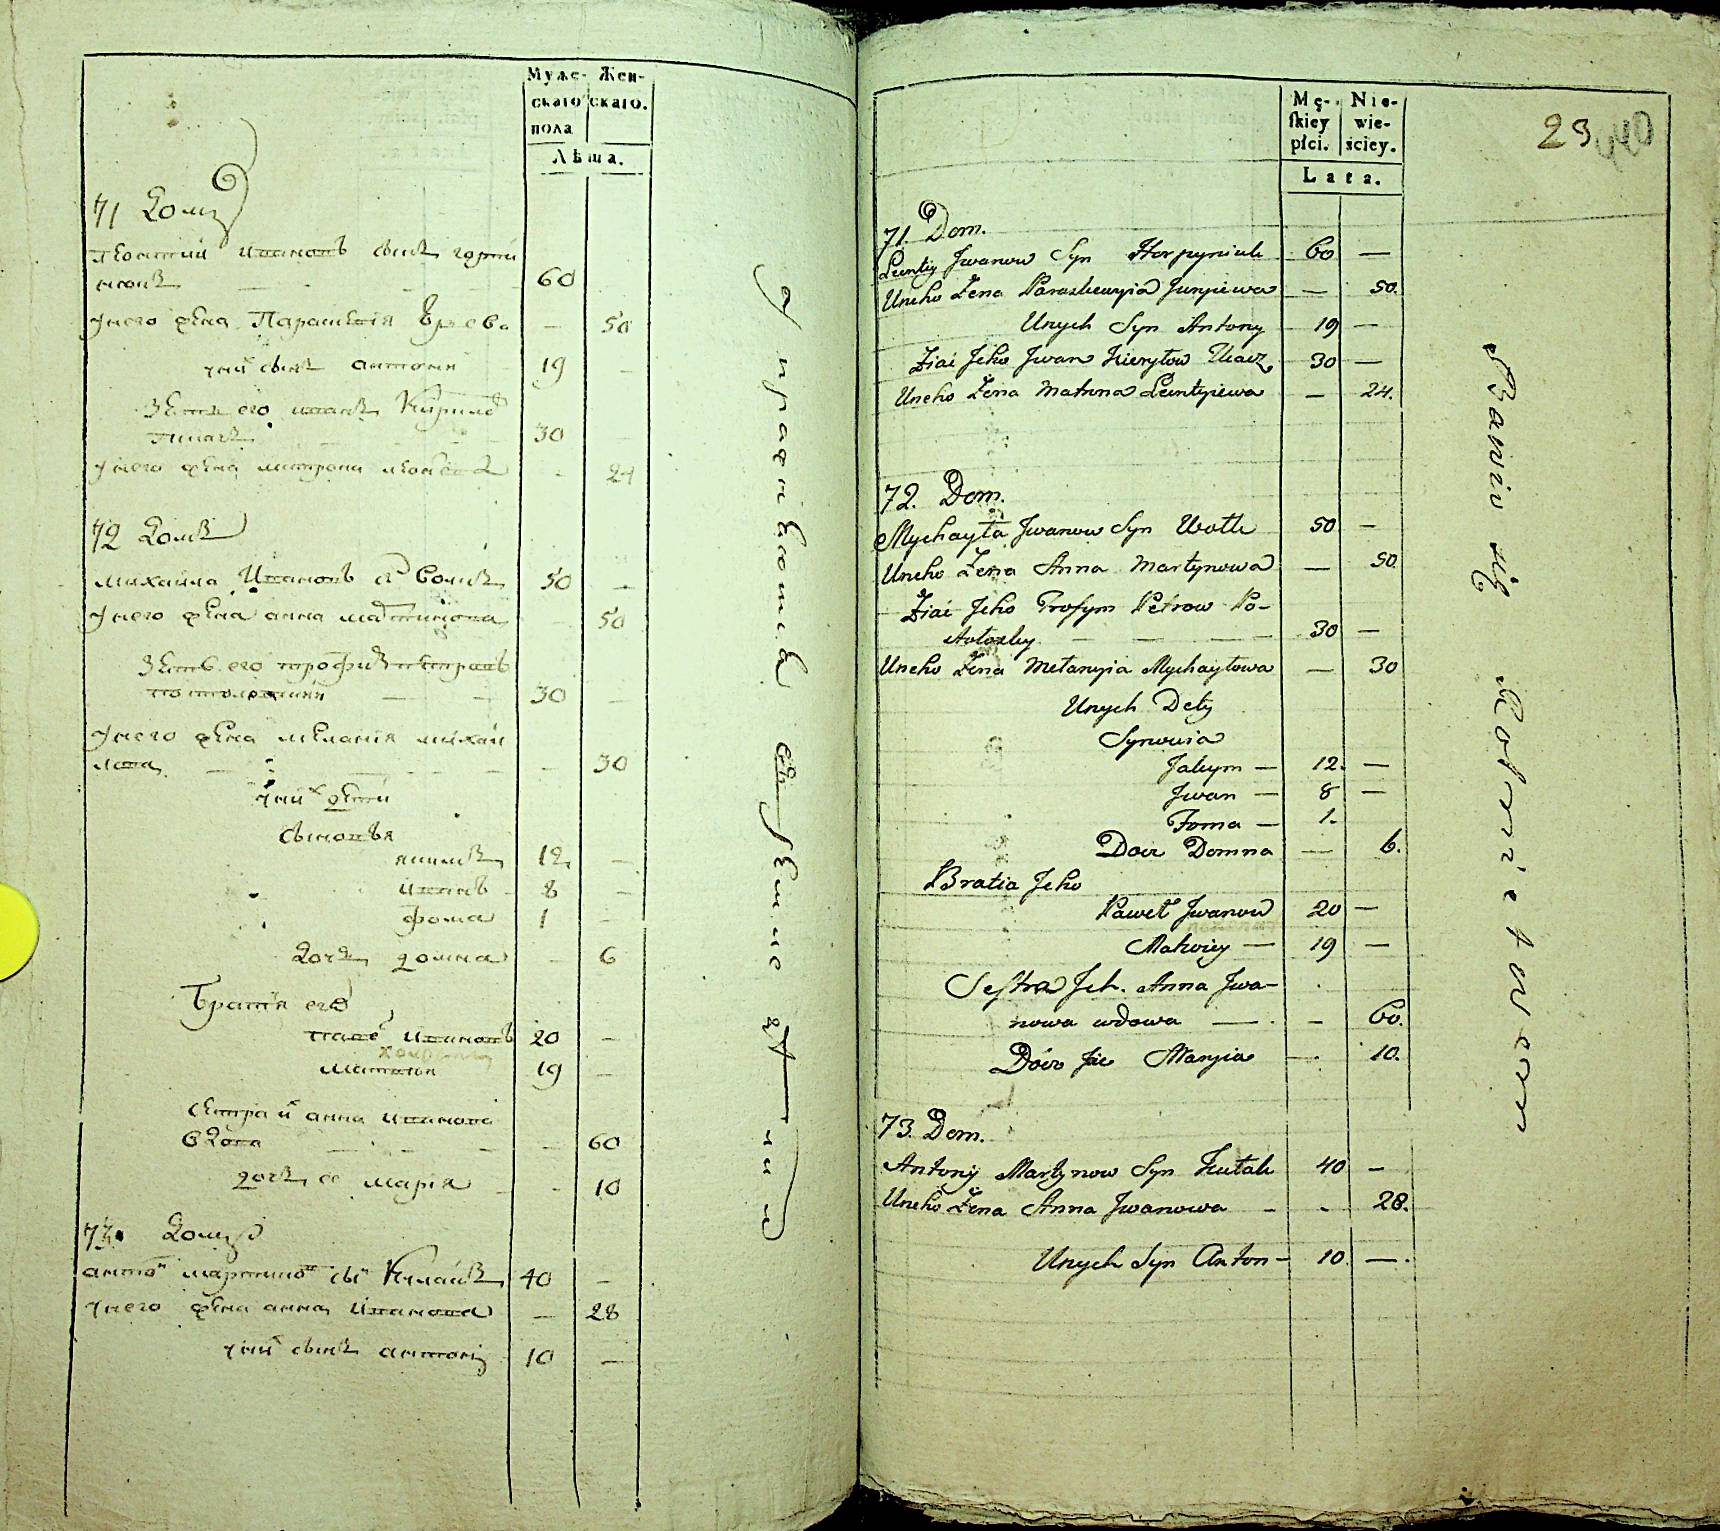 Муже- Жен-
скаго скаго.
пола
Лѣта.
71 Домъ
Леонтий Ивановъ сынъ горпи
нюкъ 60
Унего жена Параскевія — 50
Уних сынъ антоній 19 —
Зять его иванъ Кирилов
ткачъ 30
Унего жена матрона — 24
72 Домъ
михайла Ивановъ с Вовкъ 50 —
Унего жена анна мартинова 50
Зять его трофимъ петровъ
30 —
Унего жена меланія михай
лова 30
Уних дети
Сыновья
якимъ 12 —
иванъ 8 —
фома 1 —
дочь домна — 6
Братія его
павел ивановъ 20 —
матвій 19 —
сестра анна иванова
вдова — 60
дочь ее марія — 10
73. Домъ
антон мартинов сын 40 —
Унего жена анна Иванова — 28
Уних сынъ антоній 10 —
Mę- Nie-
skiey wie-
płci. ściey.
Lata.
23 440
71. Dom.
Leontiy Jwanow Syn Horpyniuk 60 —
Uneho Żena Paraskewyia Juryiewa — 50.
Unych Syn Antony 19 —
Ziat Jeho Jwan Kiryłow Tkacz 30 —
Uneho Żena Matrona Leontyiewa — 24.
72. Dom.
Mychayła Jwanow Syn Wołk 50 —
Uneho Żena Anna Martynowa — 50.
Ziat Jeho Trofym Petrow Po-
stołzky — 30 —
Uneho Żena Mełanyia Mychayłowa — 30
Unych Dety
Synowia
Jakym — 12. —
Jwan — 8 —
Foma — 1.
Docz Domna — 6.
Bratia Jeho
Paweł Jwanow 20 —
Matwiey — 19 —
Sestra Jeh. Anna Jwa-
nowa wdowa — . – 60.
Docz Jie Maryia — . 10.
73. Dom.
Antoniy Martynow Syn Kułak 40 —
Uneho Żena Anna Jwanowa - . 28.
Unych Syn Anton - 10. — .
Bawią się Rolnictwem